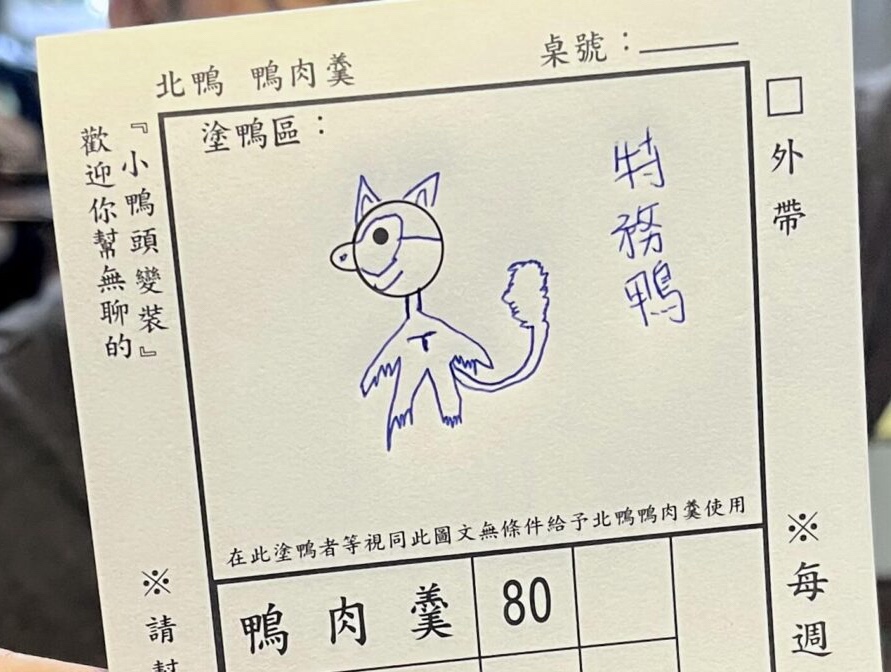 北鴨 鴨肉羹
桌號：
『小鴨頭變裝』
歡迎你幫無聊的
塗鴨區：
特務鴨
T
外帶
在此塗鴨者等視同此圖文無條件給予北鴨鴨肉羹使用
鴨肉羹 80
※請幫
※每週